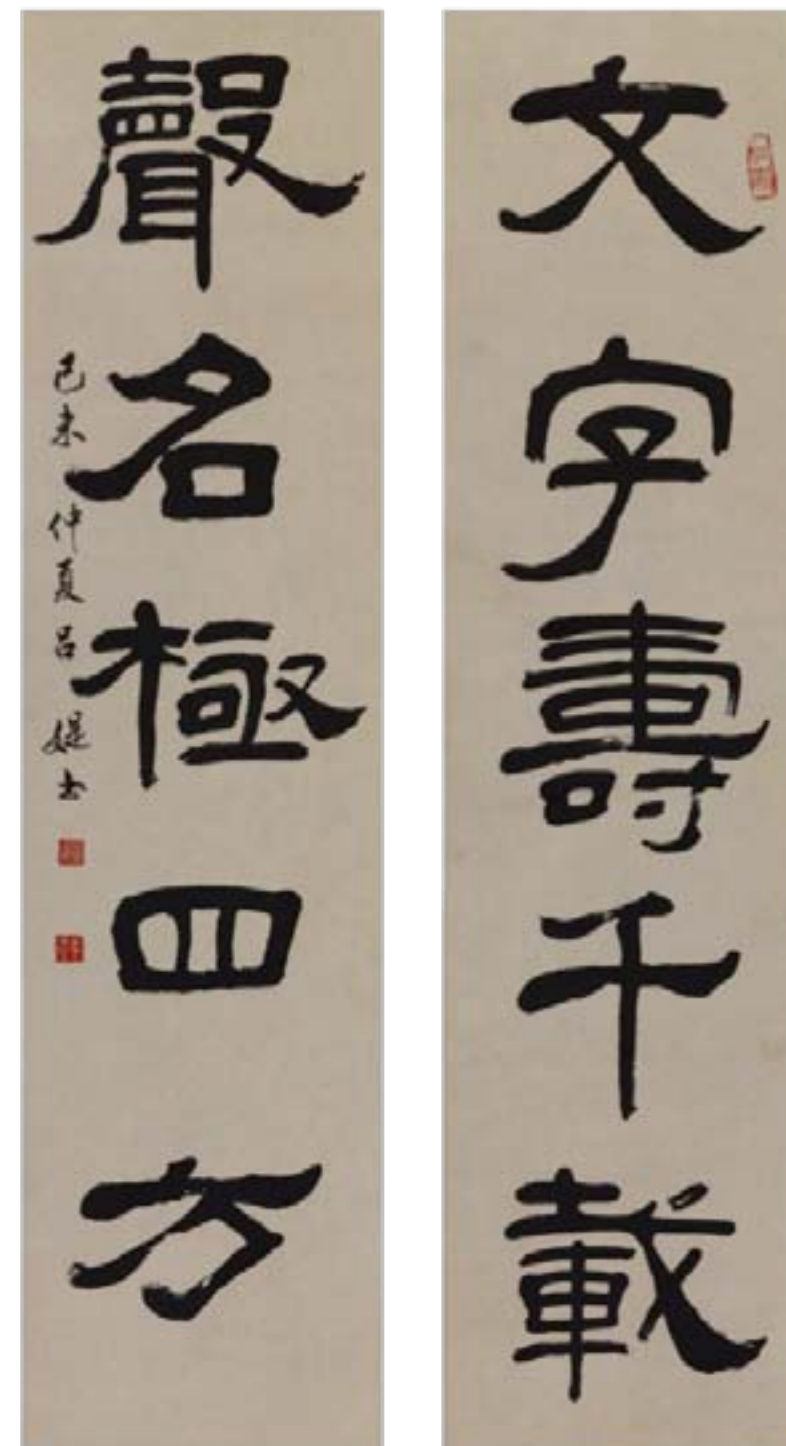 文字壽千載
聲名極四方
己未 仲夏 呂媞书